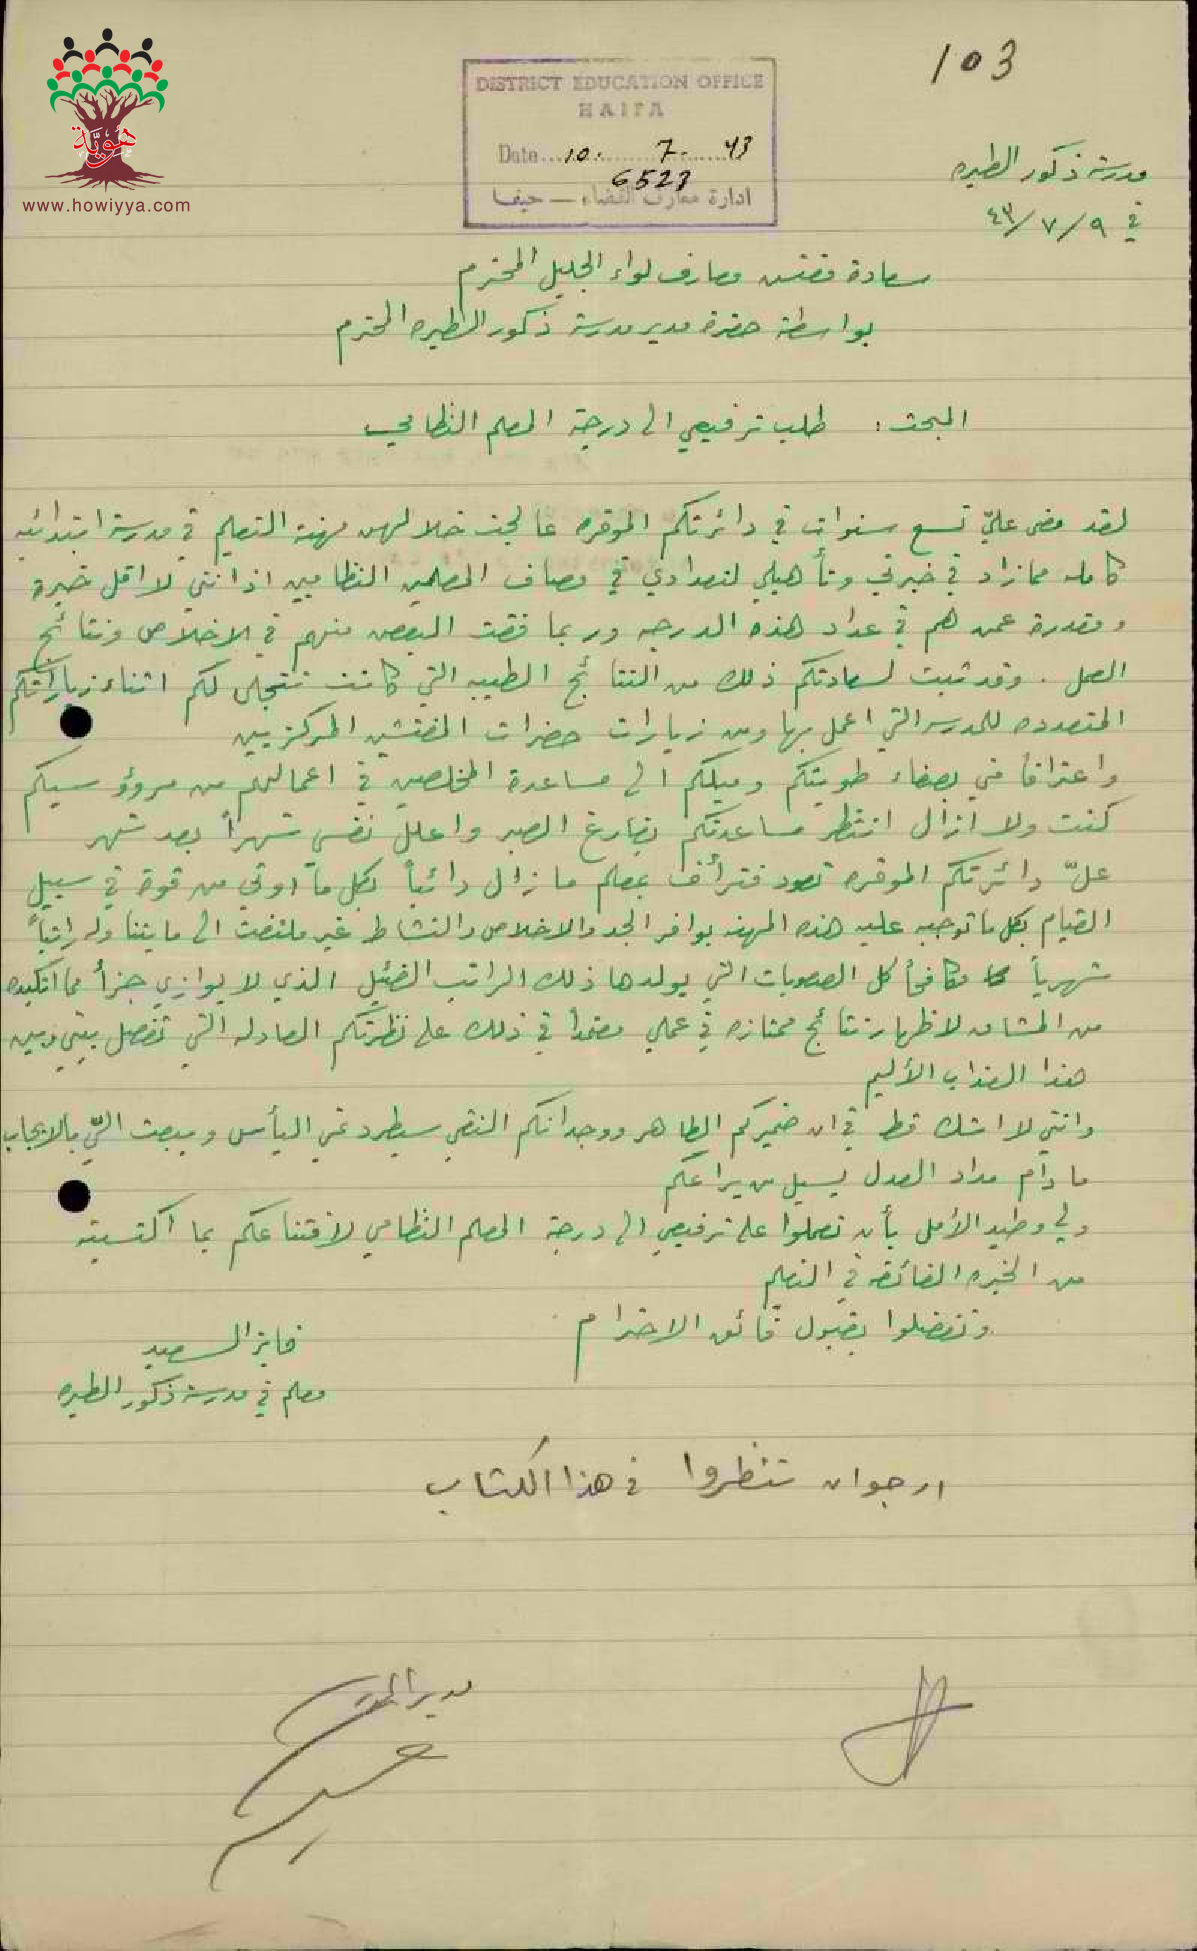 هوية
www.howiyya.com
103
DISTRICT EDUCATION OFFICE
HAIFA
Date...10. 7. 43
6523
ادارة معارف القضاء — حيفا
مدرسة ذكور الطيره
في ٩/٧/٤٣
سعادة مفتش معارف لواء الجليل المحترم
بواسطة حضرة مدير مدرسة ذكور الطيره المحترم
المبحث: طلب ترفيعي الى درجة المعلم النظامي
لقد مضى عليّ تسع سنوات في دائرتكم الموقره عالجت خلالهن مهنة التعليم في مدرسة ابتدائيه
كامله مما زاد في خبرتي وتأهيلي لتعدادي في مصاف المعلمين النظاميين اذ انني لا اقل خبرة
ومقدرة عمن هم في عداد هذه الدرجه وربما فقت البعض منهم في الاخلاص ونتائج
العمل. وقد ثبت لسعادتكم ذلك من النتائج الطيبه التي كانت تتجلى لكم اثناء زياراتكم
المتعدده للمدرسه التي اعمل بها ومن زيارات حضرات المفتشين المركزيين
واعترافا مني بصفاء طويتكم وميلكم الى مساعدة المخلصين في اعمالهم من مرؤوسيكم
كنت ولا ازال انتظر مساعدتكم بفارغ الصبر واعلل نفسي شهراً بعد شهر
علّ دائرتكم الموقره تعود فترأف بمعلم ما زال دائباً بكل ما أوتي من قوة في سبيل
القيام بكل ما توجبه عليه هذه المهنه بوافر الجد والاخلاص والنشاط غير ملتفت الى ما يتناوله راتباً
شهرياً مكافحاً كل الصعوبات التي يولدها ذلك الراتب الضئيل الذي لا يوازي جزأ مما اتكبده
من المشاق لاظهار نتائج ممتازه في عملي معتمداً في ذلك على نظرتكم العادله التي تفصل بيني وبين
هذا العذاب الأليم
وانني لا اشك قط في ان ضميركم الطاهر ووجدانكم النقي سيطرد عني اليأس ويبعث اليّ بالايجاب
ما دام مداد العدل يسيل من يراعكم
ولي وطيد الأمل بأن تعملوا على ترفيعي الى درجة المعلم النظامي لاقتناعكم بما اكتسبته
من الخبره الفائقه في التعليم
وتفضلوا بقبول فائق الاحترام
فايز السعيد
معلم في مدرسة ذكور الطيره
ارجو ان تنظروا في هذا الكتاب
مدير المدرسة